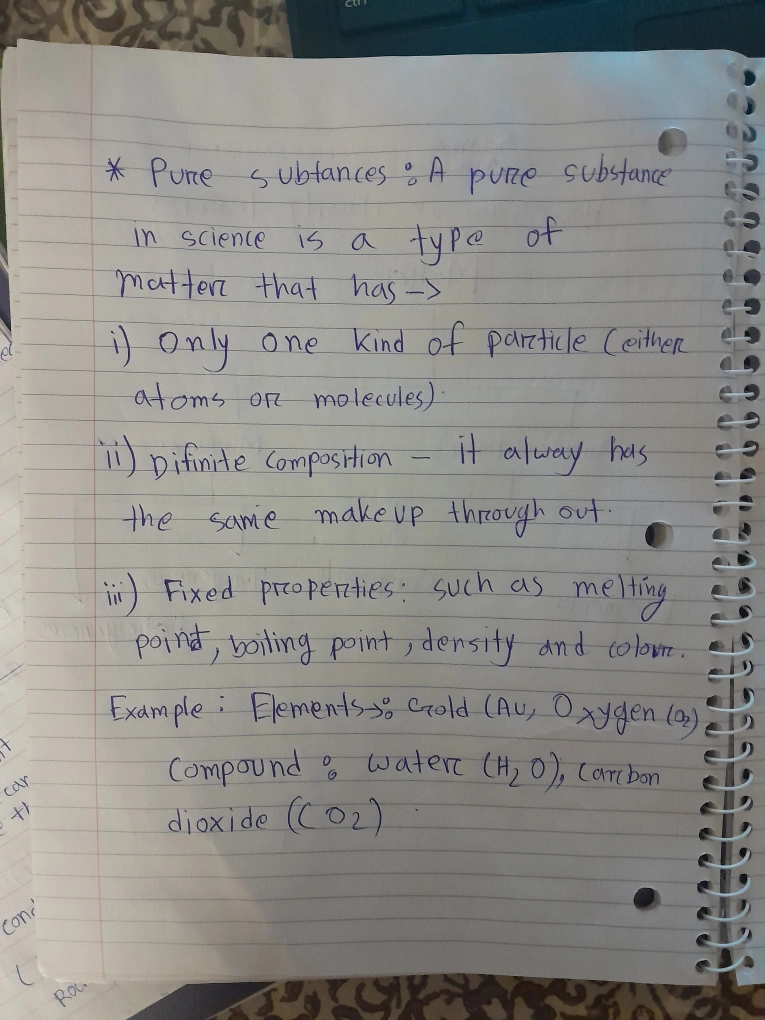 ctrl
* Pure subtances : A pure substance
in science is a type of
matter that has ->
i) Only one kind of particle (either
atoms or molecules)
ii) Difinite composition - it alway has
the same makeup through out.
iii) Fixed properties: such as melting
point, boiling point, density and colour.
Example : Elements->: Gold (Au, Oxygen (O2)
Compound : Water (H2O), Carbon
dioxide (CO2)
car